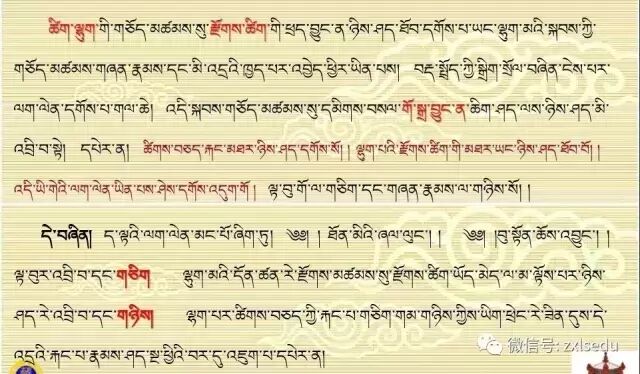 ཚིག་ལྷུག་གི་གཅོད་མཚམས་སུ་རྫོགས་ཚིག་གི་ཕྲད་བྱུང་ན་ཉིས་ཤད་ཐོབ་དགོས་པ་ཡང་ལྷུག་མའི་སྐབས་ཀྱི་
གཅོད་མཚམས་གཞན་རྣམས་དང་མི་འདྲའི་ཁྱད་པར་འབྱེད་ཕྱིར་ཡིན་པས། བརྡ་སྤྲོད་ཀྱི་སྒྲིག་སྲོལ་བཞིན་ངེས་པར་
ལག་ལེན་དགོས་པ་གལ་ཆེ། འདི་སྐབས་གཅོད་མཚམས་སུ་དམིགས་བསལ་གོ་སྒྲ་བྱུང་ན་ཆིག་ཤད་ལས་ཉིས་ཤད་མི་
འབྲི་བ་སྟེ། དཔེར་ན། ཚིགས་བཅད་རྐང་མཐར་ཉིས་ཤད་དགོས་སོ།། ལྷུག་པའི་རྫོགས་ཚིག་གི་མཐར་ཡང་ཉིས་ཤད་ཐོབ་བོ།།
འདི་ཡི་གེའི་ལག་ལེན་ཡིན་པས་ཤེས་དགོས་འདུག་གོ །ལྟ་བུ་གོ་ལ་གཅིག་དང་གཞན་རྣམས་ལ་གཉིས་སོ། །
དེ་བཞིན། ད་ལྟའི་ལག་ལེན་མང་པོ་ཞིག་ཏུ། ༄༅། །ཐོན་མིའི་ཞལ་ལུང་། ། ༄༅། །བུ་སྟོན་ཆོས་འབྱུང་། །
ལྟ་བུར་འབྲི་བ་དང་གཅིག ལྷུག་མའི་དོན་ཚན་རེ་རྫོགས་མཚམས་སུ་རྫོགས་ཚིག་ཡོད་མེད་ལ་མ་ལྟོས་པར་ཉིས་
ཤད་རེ་འབྲི་བ་དང་གཉིས། ལྷག་པར་ཚིགས་བཅད་ཀྱི་རྐང་པ་གཅིག་གམ་གཉིས་ཀྱིས་ཡིག་ཕྲེང་རེ་ཟིན་དུས་དེ་
འདྲའི་རྐང་པ་རྣམས་ཤད་སྔ་ཕྱིའི་བར་དུ་འཇུག་པ་དཔེར་ན།
微信号: zxlsedu